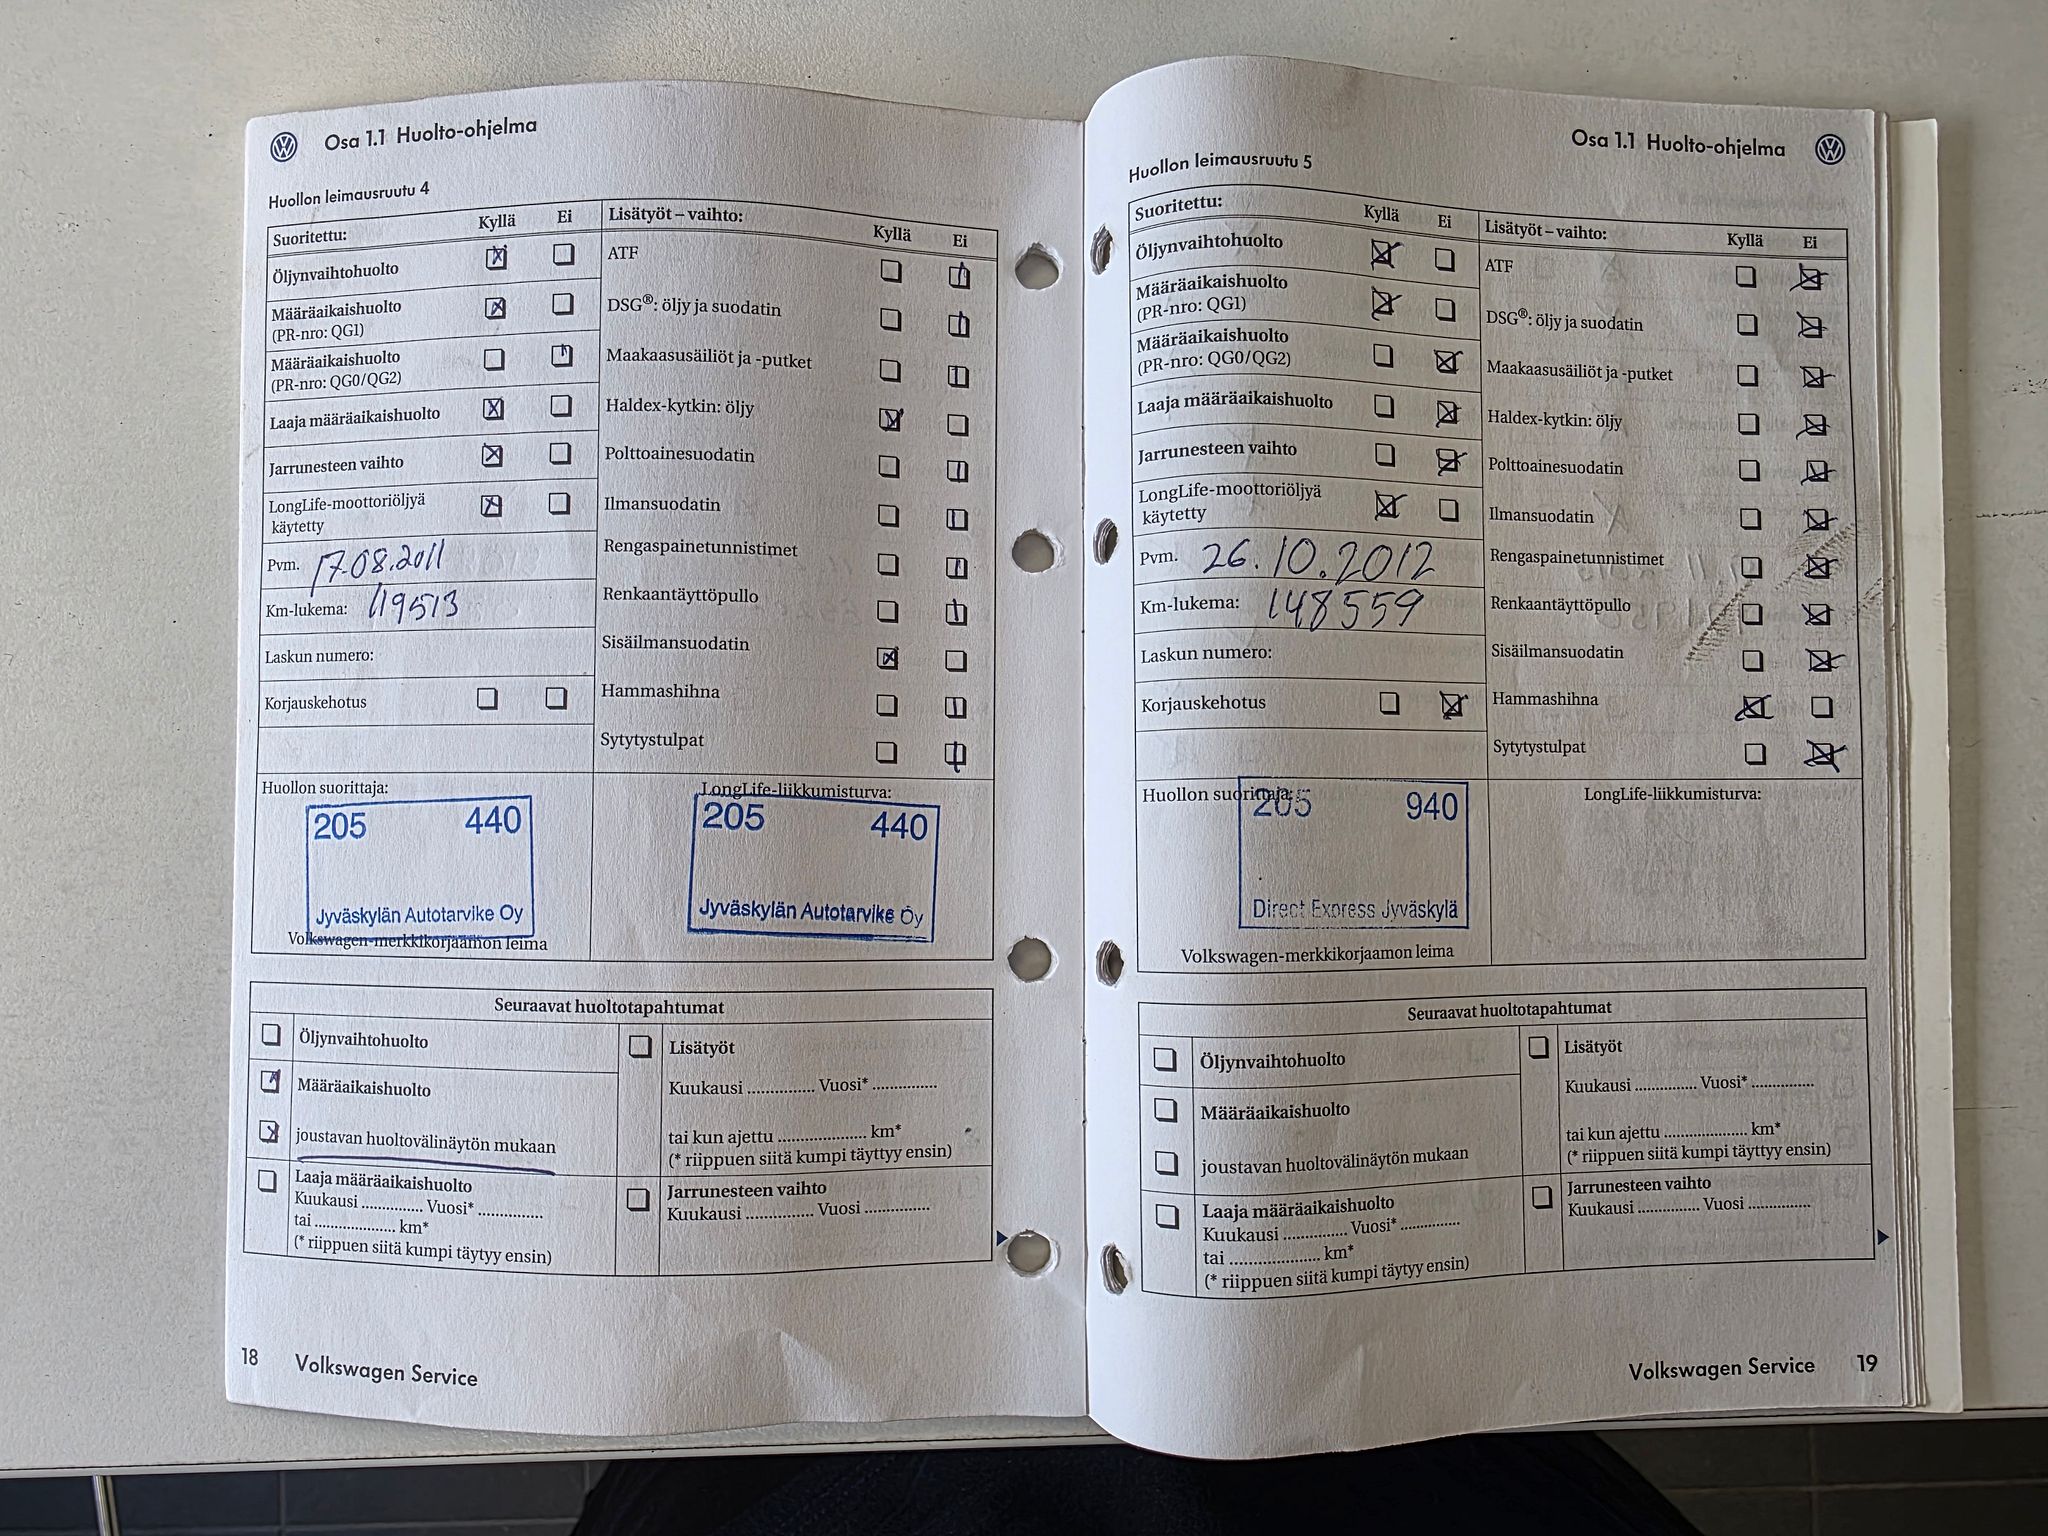 Osa 1.1 Huolto-ohjelma
Huollon leimausruutu 4
Suoritettu: Kyllä Ei
Öljynvaihtohuolto
Määräaikaishuolto
(PR-nro: QG1)
Määräaikaishuolto
(PR-nro: QG0/QG2)
Laaja määräaikaishuolto
Jarrunesteen vaihto
LongLife-moottoriöljyä
käytetty
Pvm. 17.08.2011
Km-lukema: 119513
Laskun numero:
Korjauskehotus
Lisätyöt – vaihto:
Kyllä Ei
ATF
DSG®: öljy ja suodatin
Maakaasusäiliöt ja -putket
Haldex-kytkin: öljy
Polttoainesuodatin
Ilmansuodatin
Rengaspainetunnistimet
Renkaantäyttöpullo
Sisäilmansuodatin
Hammashihna
Sytytystulpat
Huollon suorittaja:
205 440
Jyväskylän Autotarvike Oy
Volkswagen-merkkikorjaamon leima
LongLife-liikkumisturva:
205 440
Jyväskylän Autotarvike Oy
Seuraavat huoltotapahtumat
Öljynvaihtohuolto
Määräaikaishuolto
joustavan huoltovälinäytön mukaan
Laaja määräaikaishuolto
Kuukausi ............... Vuosi* ...............
tai .................... km*
(* riippuen siitä kumpi täytyy ensin)
Lisätyöt
Kuukausi ............... Vuosi* ...............
tai kun ajettu .................... km*
(* riippuen siitä kumpi täyttyy ensin)
Jarrunesteen vaihto
Kuukausi ............... Vuosi ...............
18 Volkswagen Service
Osa 1.1 Huolto-ohjelma
Huollon leimausruutu 5
Suoritettu: Kyllä Ei
Öljynvaihtohuolto
Määräaikaishuolto
(PR-nro: QG1)
Määräaikaishuolto
(PR-nro: QG0/QG2)
Laaja määräaikaishuolto
Jarrunesteen vaihto
LongLife-moottoriöljyä
käytetty
Pvm. 26.10.2012
Km-lukema: 148559
Laskun numero:
Korjauskehotus
Lisätyöt – vaihto: Kyllä Ei
ATF
DSG®: öljy ja suodatin
Maakaasusäiliöt ja -putket
Haldex-kytkin: öljy
Polttoainesuodatin
Ilmansuodatin
Rengaspainetunnistimet
Renkaantäyttöpullo
Sisäilmansuodatin
Hammashihna
Sytytystulpat
Huollon suorittaja:
205 940
Direct Express Jyväskylä
Volkswagen-merkkikorjaamon leima
LongLife-liikkumisturva:
Seuraavat huoltotapahtumat
Öljynvaihtohuolto
Määräaikaishuolto
joustavan huoltovälinäytön mukaan
Laaja määräaikaishuolto
Kuukausi ............... Vuosi* ...............
tai .................... km*
(* riippuen siitä kumpi täytyy ensin)
Lisätyöt
Kuukausi ............... Vuosi* ...............
tai kun ajettu .................... km*
(* riippuen siitä kumpi täyttyy ensin)
Jarrunesteen vaihto
Kuukausi ............... Vuosi ...............
Volkswagen Service 19